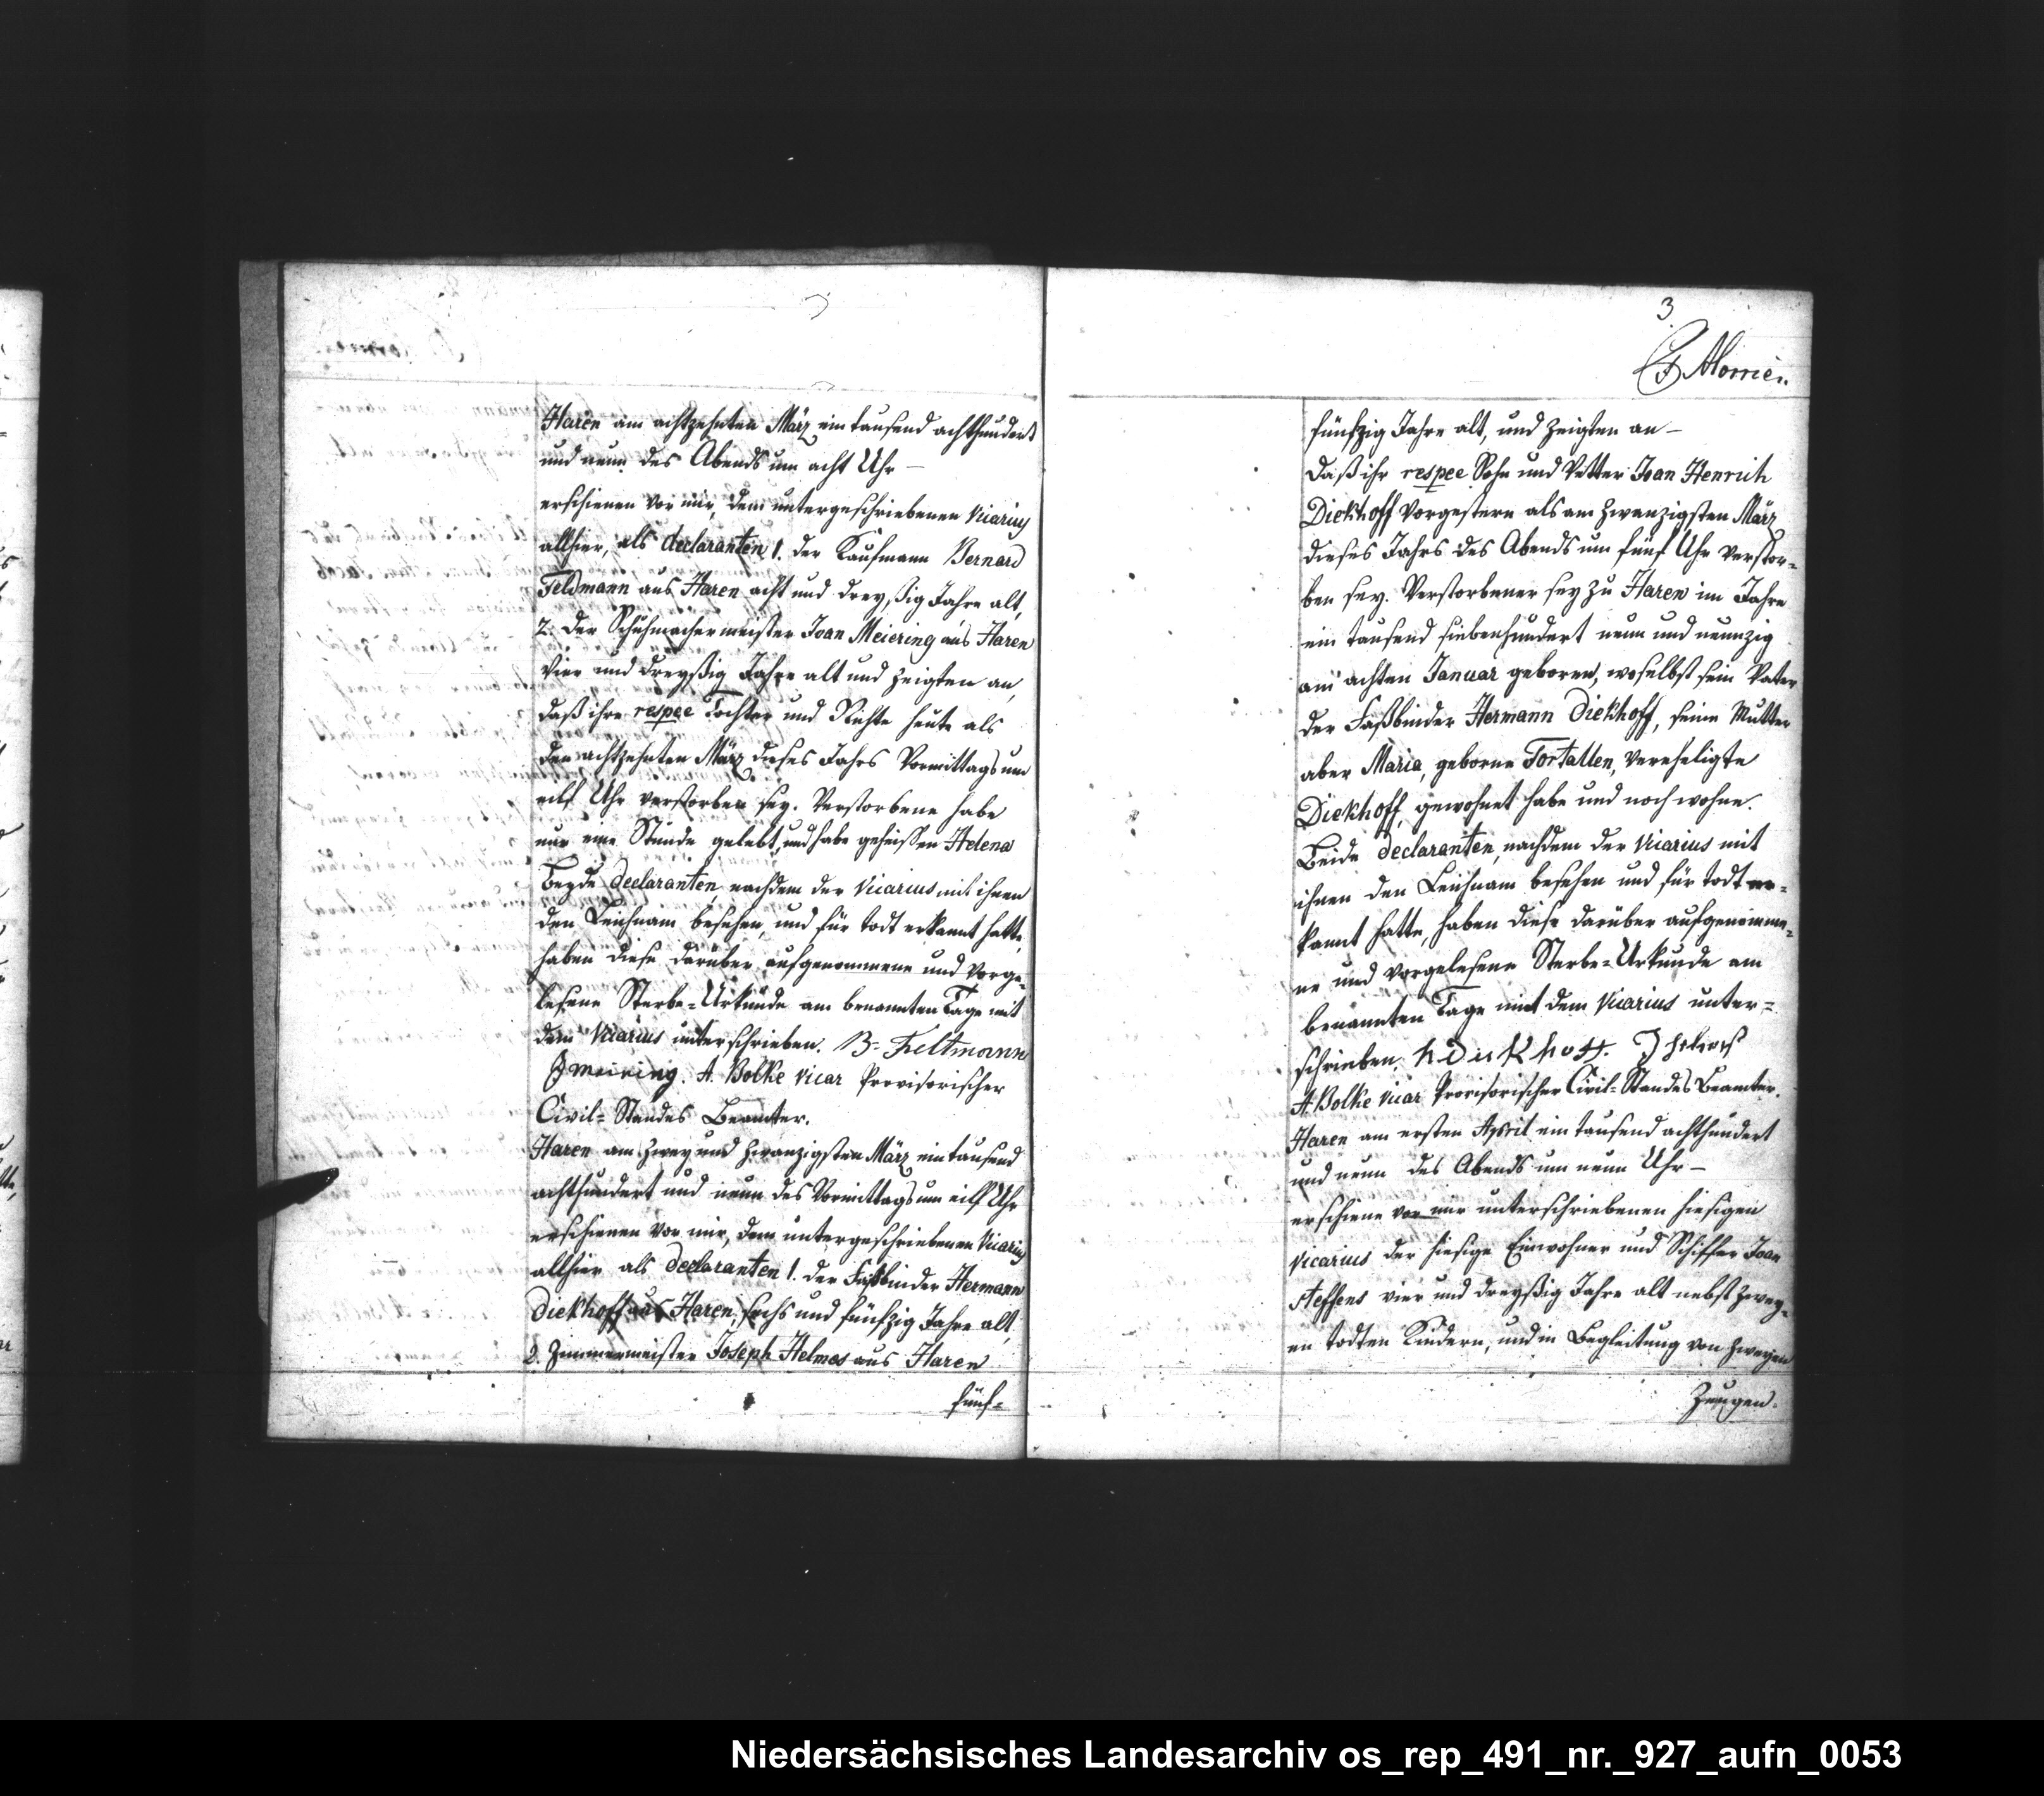 Haren am achtzehnten März ein tausend achthundert
und neun des Abends um acht Uhr –
erschienen vor mir, dem untergeschriebenen Vicarius
allhier, als declaranten 1. der Kaufmann Bernard
Feldmann aus Haren acht und dreyßig Jahre alt,
2. der Schuhmachermeister Joan Meiering aus Haren
vier und dreyßig Jahre alt und zeigten an,
daß ihre respee Tochter und Nichte heute als
den achtzehnten März dieses Jahrs Vormittags um
eilf Uhr verstorben sey. Verstorbene habe
nur eine Stunde gelebt, und habe geheissen Helena
Beyde declaranten, nachdem der Vicarius mit ihnen
den Leichnam besehen, und für todt erkannt hatte,
haben diese darüber aufgenommene und vorge-
lesene Sterbe-Urkunde am benannten Tage mit
dem Vicarius unterschrieben. B= Feltmann
J meiring. A. Bolke vicar Provisorischer
Civil-Standes Beamter.
Haren am zwey und zwanzigsten März ein tausend
achthundert und neun des Vormittags um eilf Uhr
erschienen vor mir, dem untergeschriebenen Vicarius
allhier als declaranten 1. der Faßbinder Hermann
Diekhoff aus Haren, sechs und fünfzig Jahre alt
2. Zimmermeister Joseph Helmes aus Haren
fünf=
3
Morrien
fünfzig Jahre alt, und zeigten an –
daß ihr respee Sohn und Vetter Joan Henrich
Diekhoff vorgestern als am zwanzigsten März
dieses Jahrs des Abends um fünf Uhr verstor-
ben sey. Verstorbener sey zu Haren im Jahre
ein tausend siebenhundert neun und neunzig
am achten Januar geboren, woselbst sein Vater
der Faßbinder Hermann Diekhoff, seine Mutter
aber Maria, geborne Tortallen, verehligte
Diekhoff, gewohnet habe und noch wohne.
Beide declaranten, nachdem der Vicarius mit
ihnen den Leichnam besehen und für todt er-
kannt hatte, haben diese darüber aufgenomme-
ne und vorgelesene Sterbe-Urkunde am
benannten Tage mit dem Vicarius unter-
schrieben. h diekhoff. J
A. Bolke vicar Provisorischer Civil-Standes Beamter.
Haren am ersten April ein tausend achthundert
und neun des Abends um neun Uhr –
erschiene vor mir unterschriebenen hiesigen
Vicarius der hiesige Einwohner und Schiffer Joan
Steffens vier und dreyßig Jahre alt nebst zwey-
en todten Kindern, und in Begleitung von zweyen
Zeugen.
Niedersächsisches Landesarchiv os_rep_491_nr._927_aufn_0053